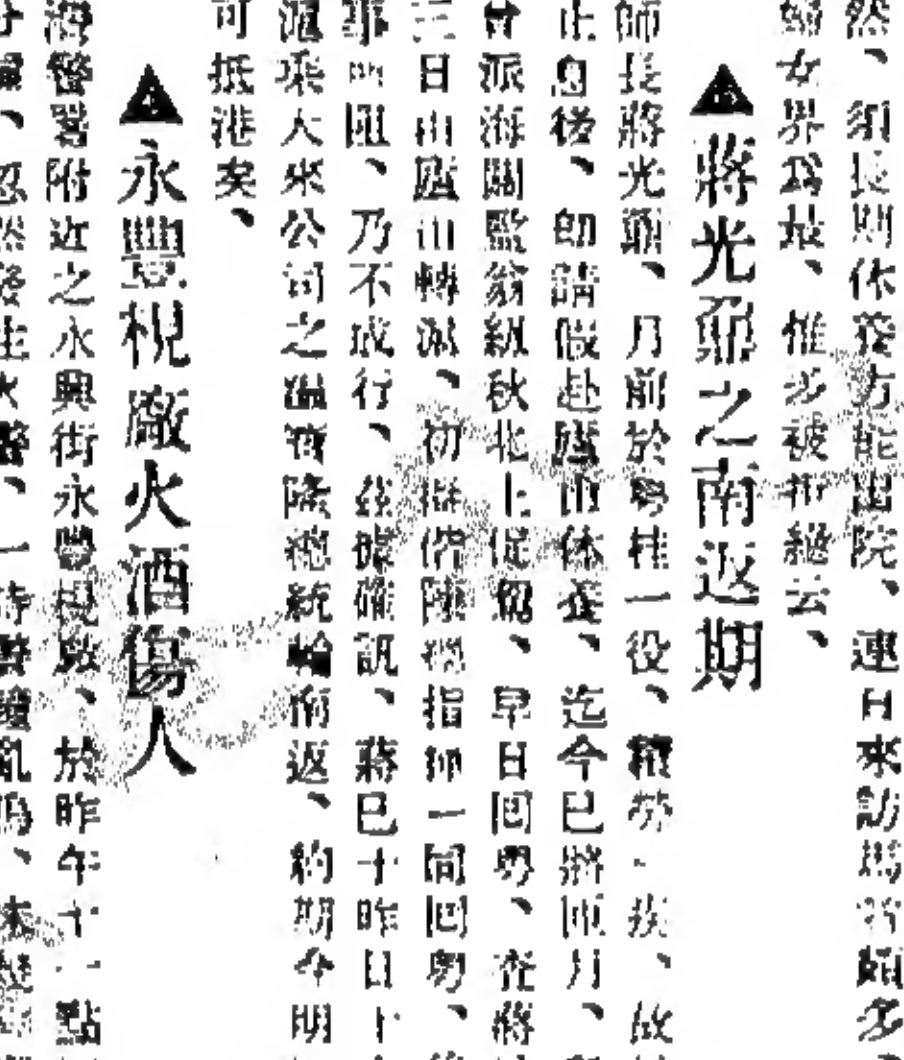 然、須長則休養方能出院、連日來訪馬者頗多
婦女界爲最、惟多被拒絕云、
▲蔣光鼐之南返期
師長蔣光鼐、月前於粤桂一役、積勞 疾、故
止息後、卽請假赴廬山休養、迄今已將兩月、
曾派海關監翁紙秋北上促駕、早日囘粤、查蔣
三日由廬山轉滬、初擬偕陳總指揮一同囘粤、
事所阻、乃不成行、茲據確訊、蔣已于昨日上
滬乘大來公司之 總統輪南返、約期今明
可抵港矣、
▲永豐梘廠火酒傷人
海警署附近之永興街永豐梘廠、於昨午十一點
、忽然發生火警、一時警鐘亂鳴、